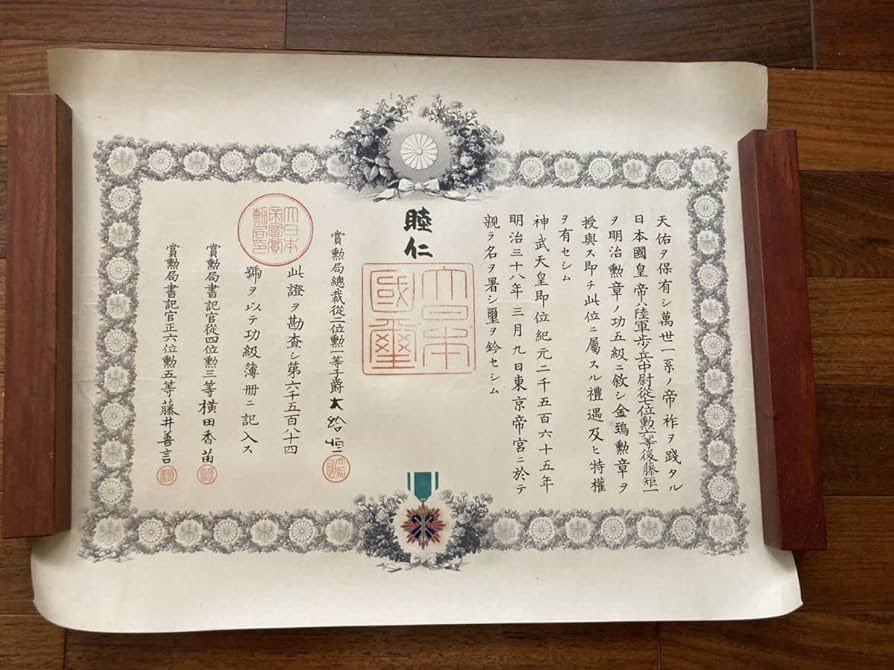 天佑ヲ保有シ萬世一系ノ帝祚ヲ踐タル
日本國皇帝ハ陸軍歩兵中尉從七位勲六等後藤矩一
ヲ明治勲章ノ功五級ニ敘シ金鵄勲章ヲ
授與ス即チ此位ニ屬スル禮遇及ヒ特權
ヲ有セシム
神武天皇即位紀元二千五百六十五年
明治三十八年三月九日東京帝宮ニ於テ
親ラ名ヲ署シ璽ヲ鈐セシム
睦仁
大日本國璽
賞勲局總裁從二位勲一等子爵大給恒
此證ヲ勘査シ第六千五百八十四
號ヲ以テ功級簿冊ニ記入ス
大日本帝國賞勲局印
賞勲局書記官從四位勲三等横田香苗
賞勲局書記官正六位勲五等藤井善言